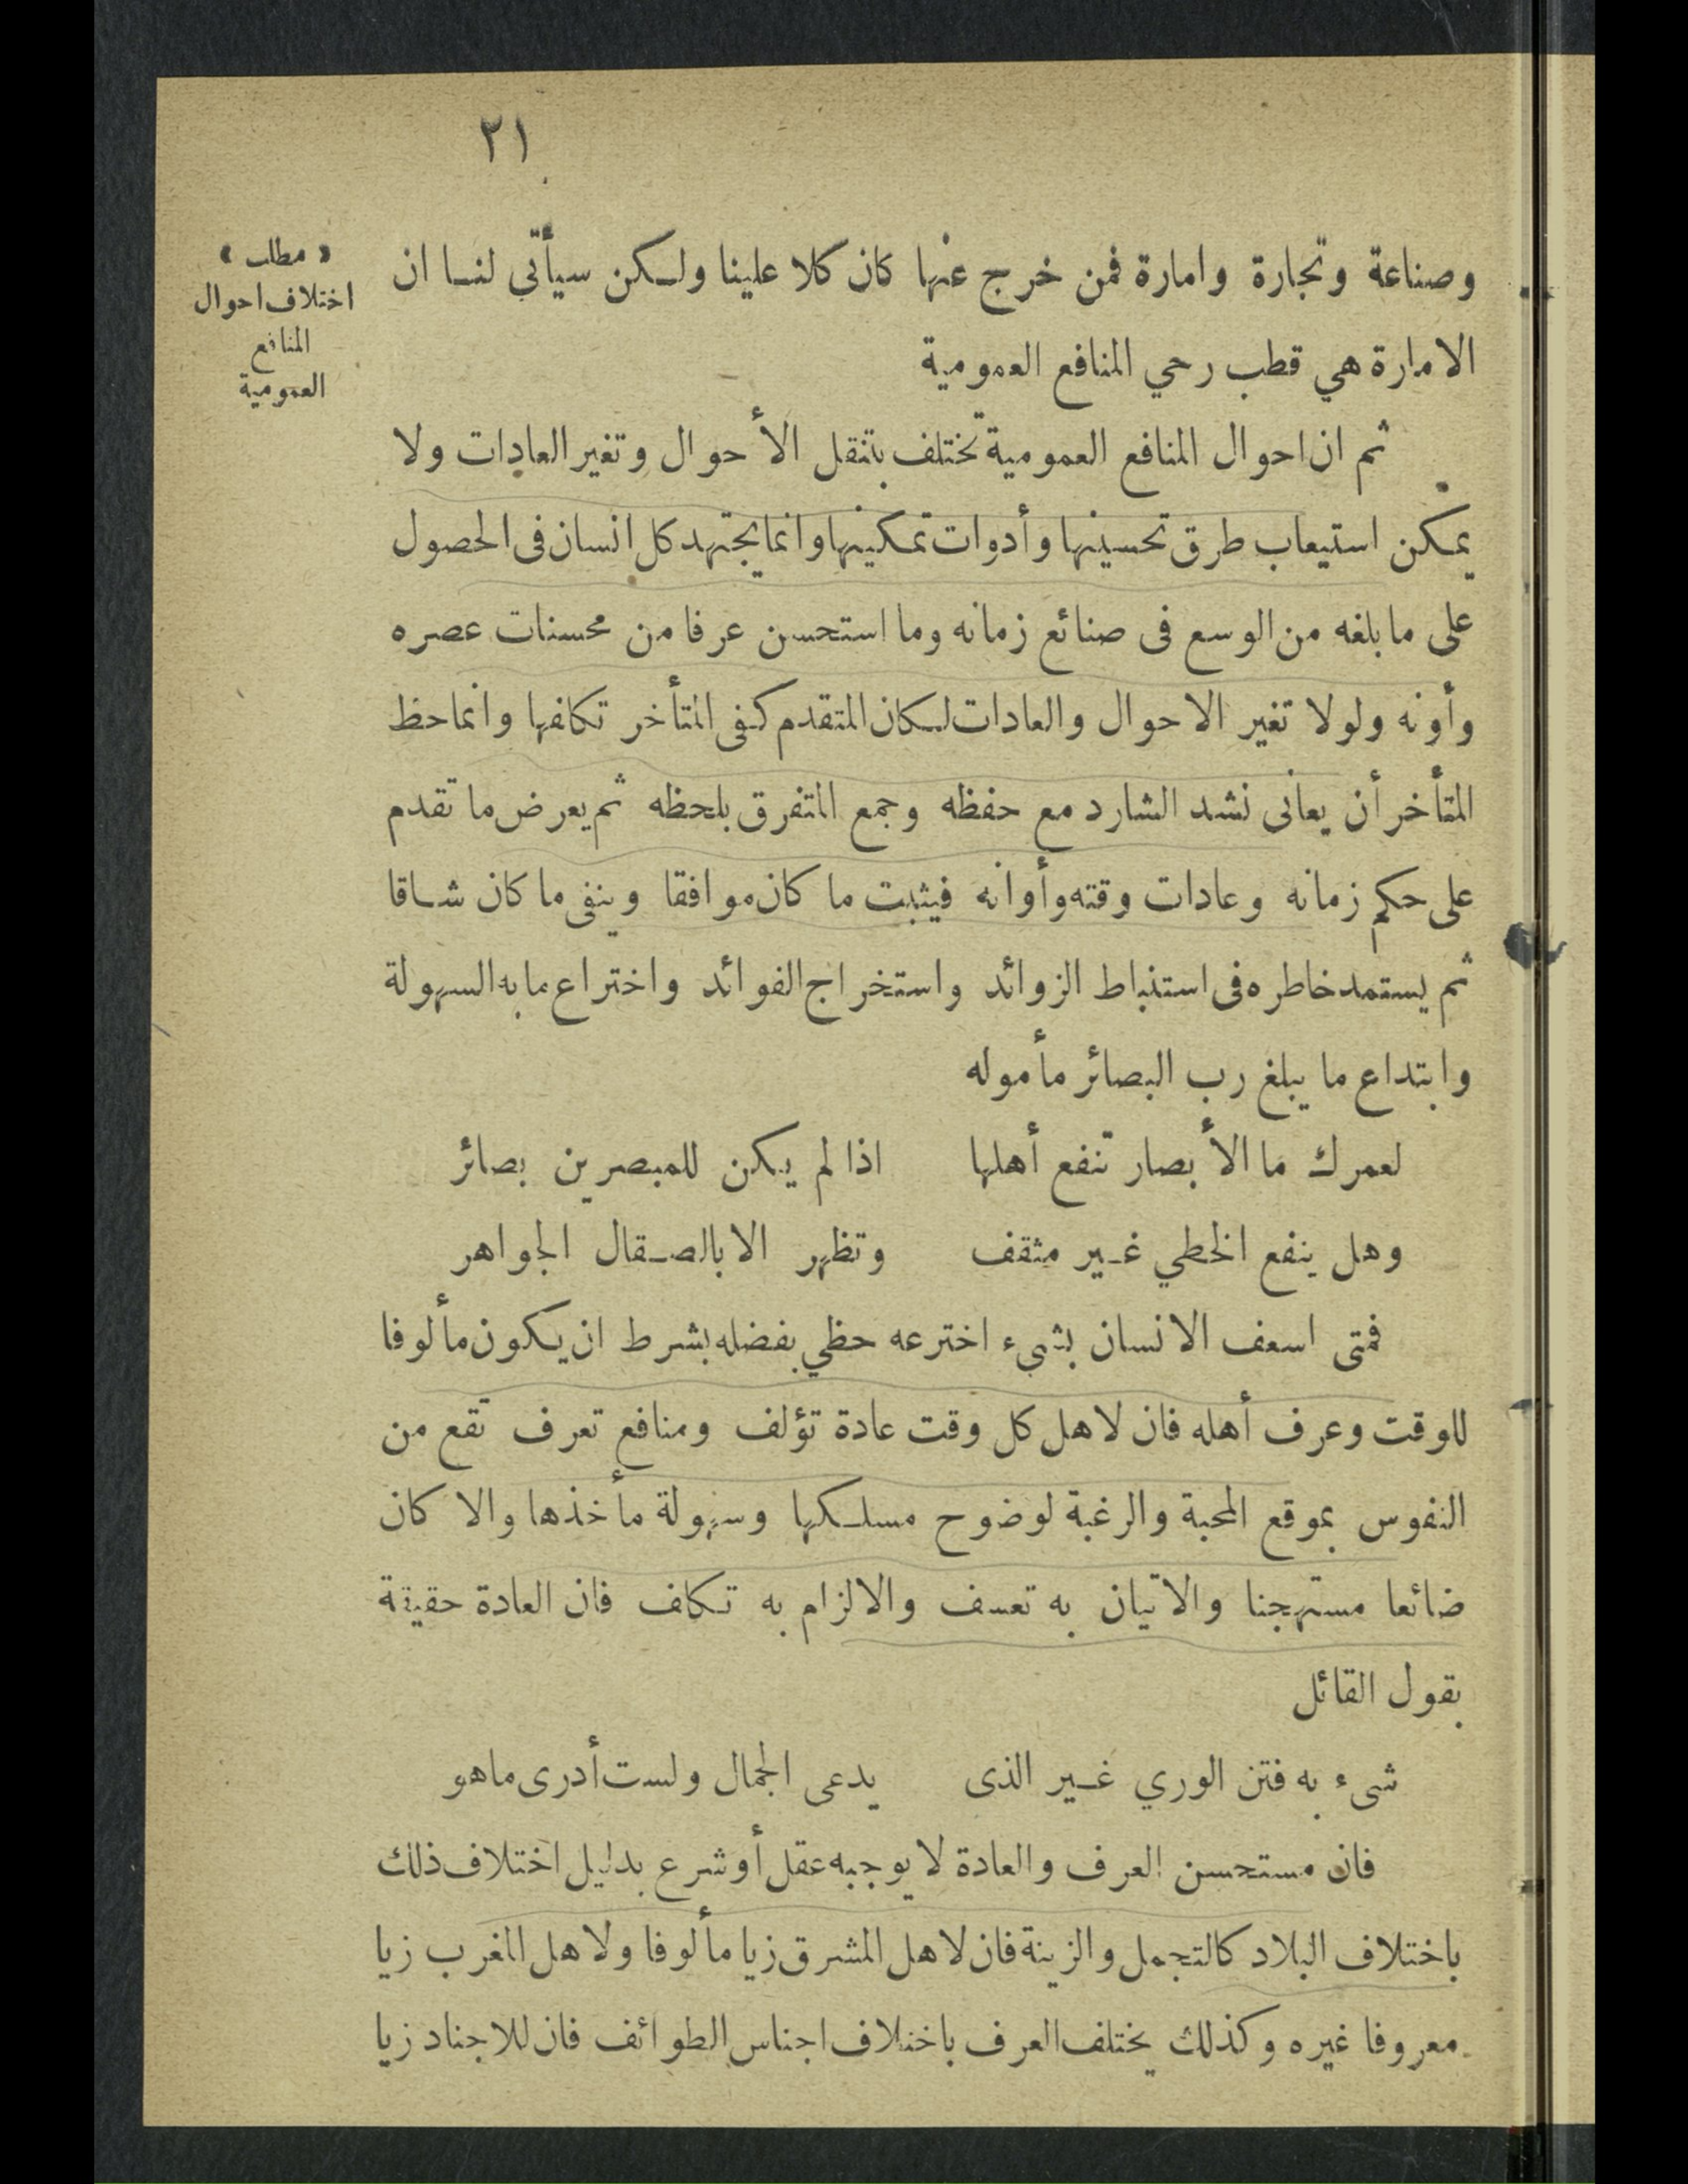 ٢١
وصناعة وتجارة وامارة فمن خرج عنها كان كلا علينا ولكن سيأتي لنا ان
الامارة هي قطب رحي المنافع العمومية
﴿ مطلب ﴾
اختلاف احوال
المنافع
العمومية
ثم ان احوال المنافع العمومية تختلف بتنقل الأحوال وتغير العادات ولا
يمكن استيعاب طرق تحسينها وأدوات تمكينها وانما يجتهد كل انسان فى الحصول
على ما بلغه من الوسع فى صنائع زمانه وما استحسن عرفا من محسنات عصره
وأونه ولولا تغير الاحوال والعادات لكان المتقدم كفى المتأخر تكلفها وانما حظ
المتأخر أن يعانى نشد الشارد مع حفظه وجمع المتفرق بلحظه ثم يعرض ما تقدم
على حكم زمانه وعادات وقته وأوانه فيثبت ما كان موافقا وينفى ما كان شاقا
ثم يستمد خاطره فى استنباط الزوائد واستخراج الفوائد واختراع ما به السهولة
وابتداع ما يبلغ رب البصائر مأموله
لعمرك ما الأبصار تنفع أهلها اذا لم يكن للمبصرين بصائر
وهل ينفع الخطي غير مثقف وتظهر الا بالصقال الجواهر
فمتى اسعف الانسان بشيء اخترعه حظي بفضله بشرط ان يكون مألوفا
للوقت وعرف أهله فان لاهل كل وقت عادة تؤلف ومنافع تعرف تقع من
النفوس بموقع المحبة والرغبة لوضوح مسلكها وسهولة مأخذها والا كان
ضائعا مستهجنا والاتيان به تعسف والالزام به تكلف فان العادة حقيقة
بقول القائل
شيء به فتن الوري غير الذى يدعى الجمال ولست أدرى ما هو
فان مستحسن العرف والعادة لا يوجبه عقل أو شرع بدليل اختلاف ذلك
باختلاف البلاد كالتجمل والزينة فان لاهل المشرق زيا مألوفا ولاهل المغرب زيا
معروفا غيره وكذلك يختلف العرف باختلاف اجناس الطوائف فان للاجناد زيا